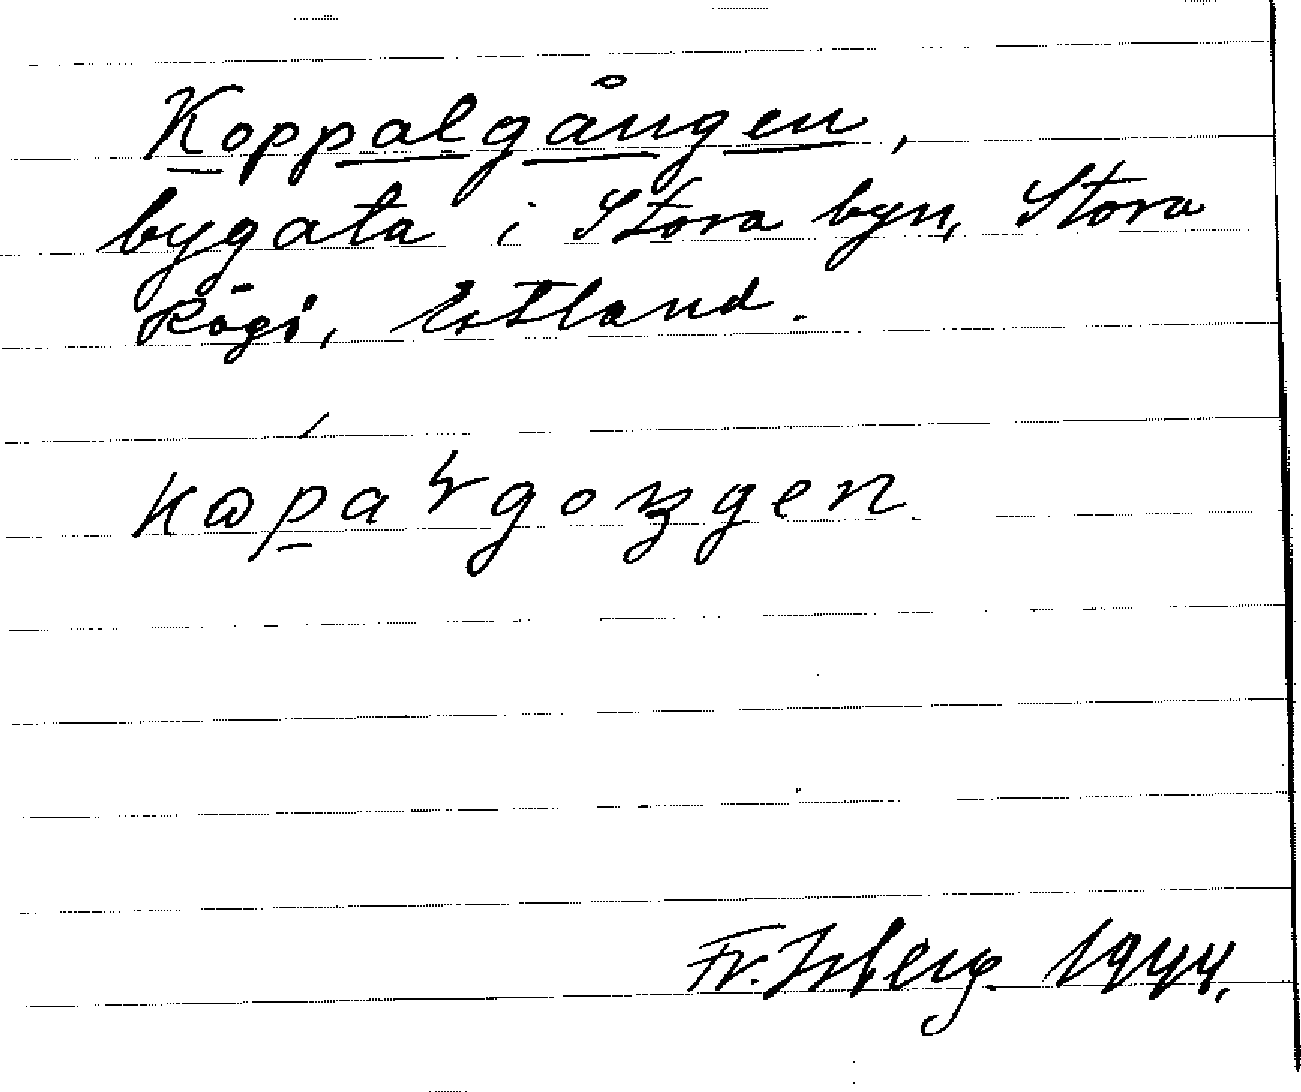 Koppalgången,
bygata i Stora byn, Stora
Rågö, Estland.
Fr. Isberg 1944.